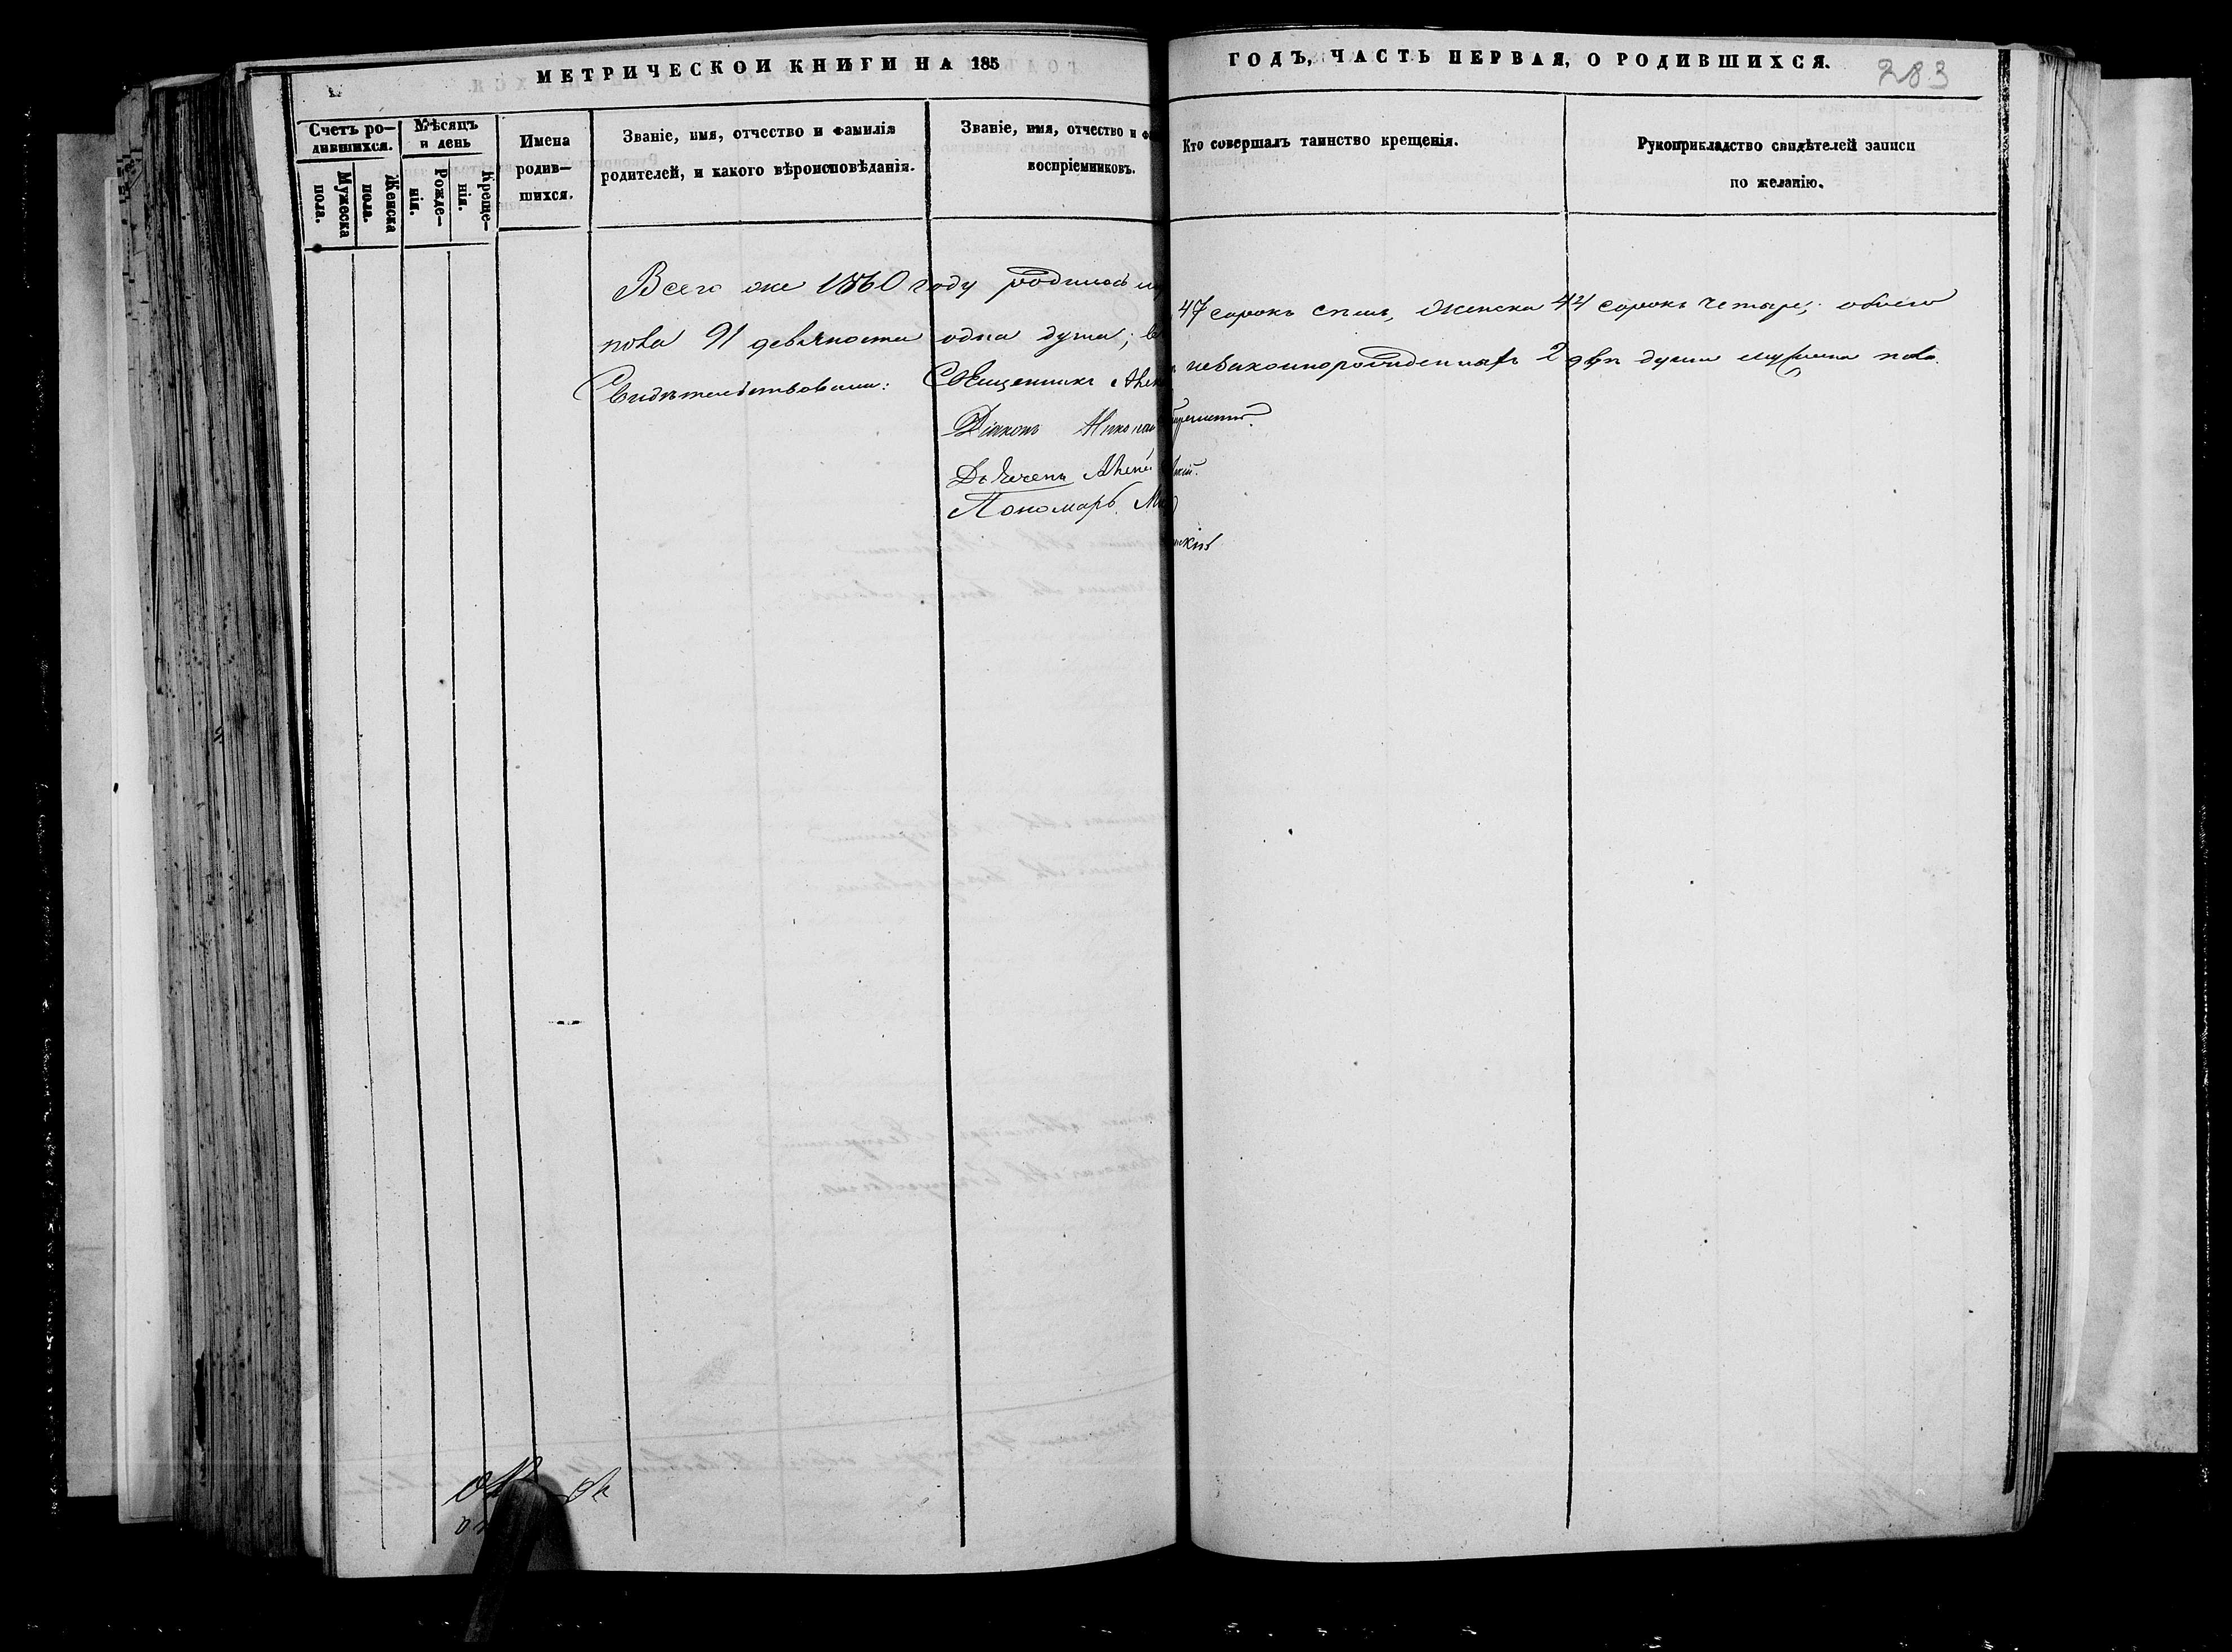 МЕТРИЧЕСКОЙ КНИГИ НА 185 ГОДЪ, ЧАСТЬ ПЕРВАЯ, О РОДИВШИХСЯ.
283
Счетъ ро-
дившихся.
Мужеска
пола.
Женска
пола.
Мѣсяцъ
и день
Рожде-
нія.
Креще-
нія.
Имена
родив-
шихся.
Званіе, имя, отчество и фамилія
родителей, и какого вѣроисповѣданія.
Званіе, имя, отчество и
воспріемниковъ.
Кто совершалъ таинство крещенія.
Рукоприкладство свидѣтелей записи
по желанію.
Всего же 1860 году родилось 47 сорокъ семь, женска 44 сорокъ четыре, обоего
пола 91 девяносто одна душа; незаконнорожденныхъ 2 двѣ души мужеска пола.
Свидѣтельствовали: Священникъ
Діаконъ Николай
Дьячекъ
Пономарь